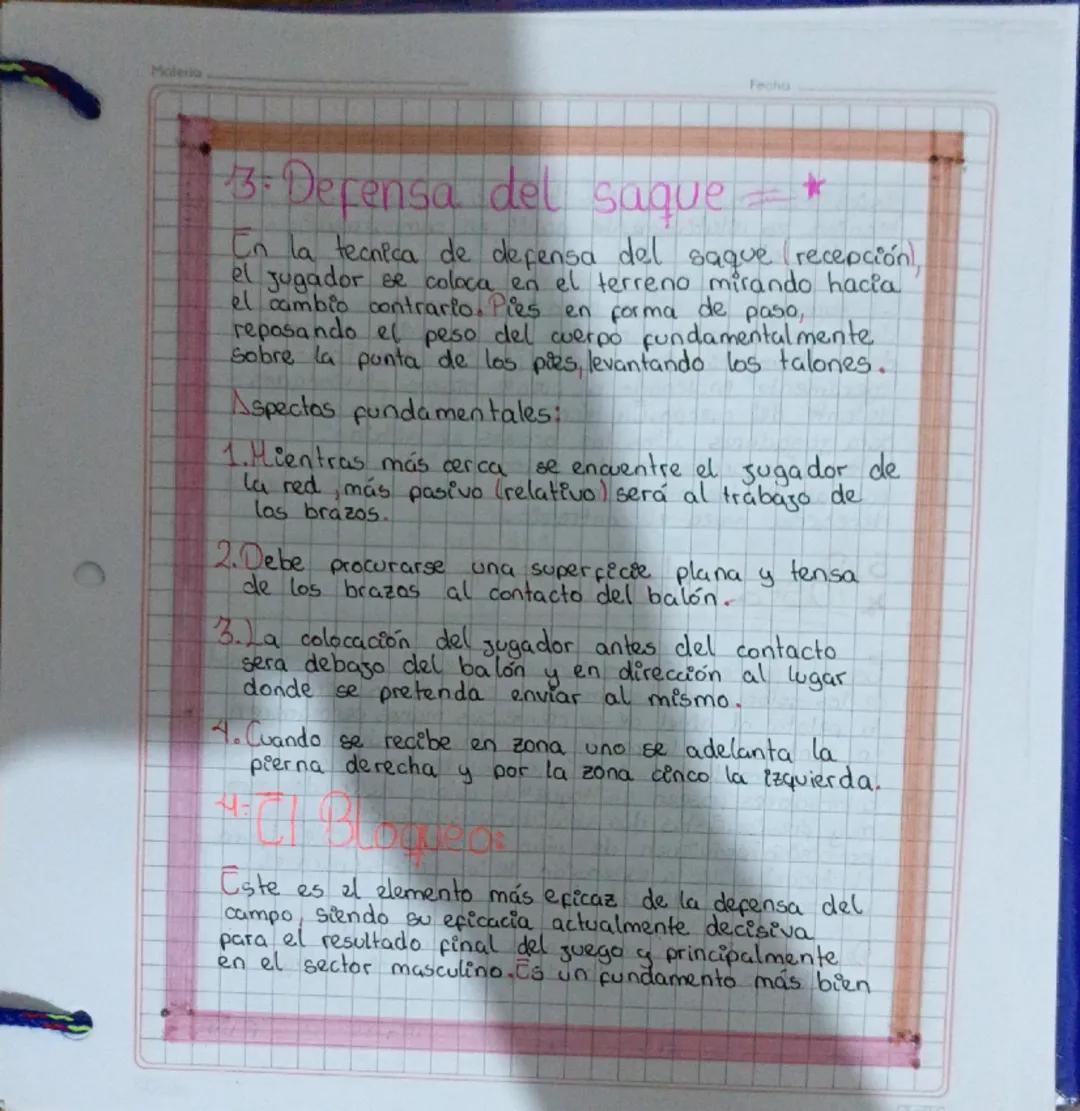 Materia
Fecha
3- Defensa del saque = *
En la tecnica de defensa del saque (recepción),
el jugador se coloca en el terreno mirando hacia
el cambio contrario. Pies en forma de paso,
reposando el peso del cuerpo fundamentalmente
sobre la punta de los pies, levantando los talones.
Aspectos fundamentales:
1. Mientras más cerca se encuentre el jugador de
la red, más pasivo (relativo) será al trabajo de
los brazos.
2. Debe procurarse una superficie plana y tensa
de los brazos al contacto del balón.
3. La colocación del jugador antes del contacto
sera debajo del balón y en dirección al lugar
donde se pretenda enviar al mismo.
4. Cuando se recibe en zona uno se adelanta la
pierna derecha y por la zona cinco la izquierda.
4- El Bloqueo:
Este es el elemento más eficaz de la defensa del
campo, siendo su eficacia actualmente decisiva
para el resultado final del juego y principalmente
en el sector masculino. Es un fundamento más bien